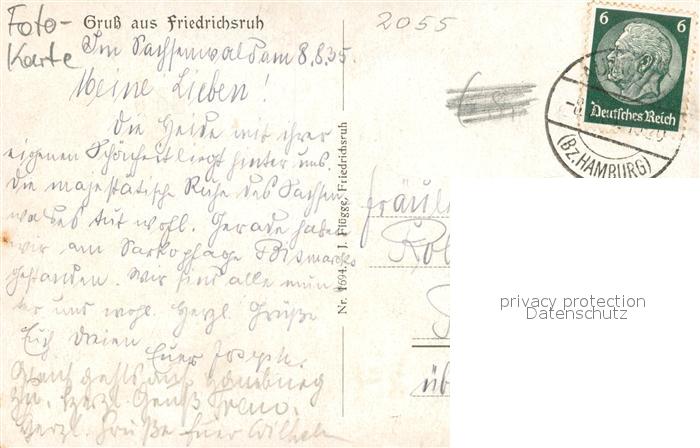 Foto-
Karte
Gruß aus Friedrichsruh
Im Sachsenwald am 8.8.35.
Meine Lieben!
Die Heide mit ihrer
eigenen Schönheit liegt hinter uns.
Die majestätische Ruhe des Sachsen
waldes tut wohl. Gerade haben
wir am Sarkophage Bismarcks
gestanden. Wir sind alle mun-
ter uns wohl. Herzl. Grüße
Euch dreien
Euer Joseph.
Hamburg
Herzl. Grüße Euer Wilhelm
Nr. 1694. J. Flügge, Friedrichsruh
2055
6 6
Deutsches Reich
(BZ. HAMBURG)
privacy protection
Datenschutz